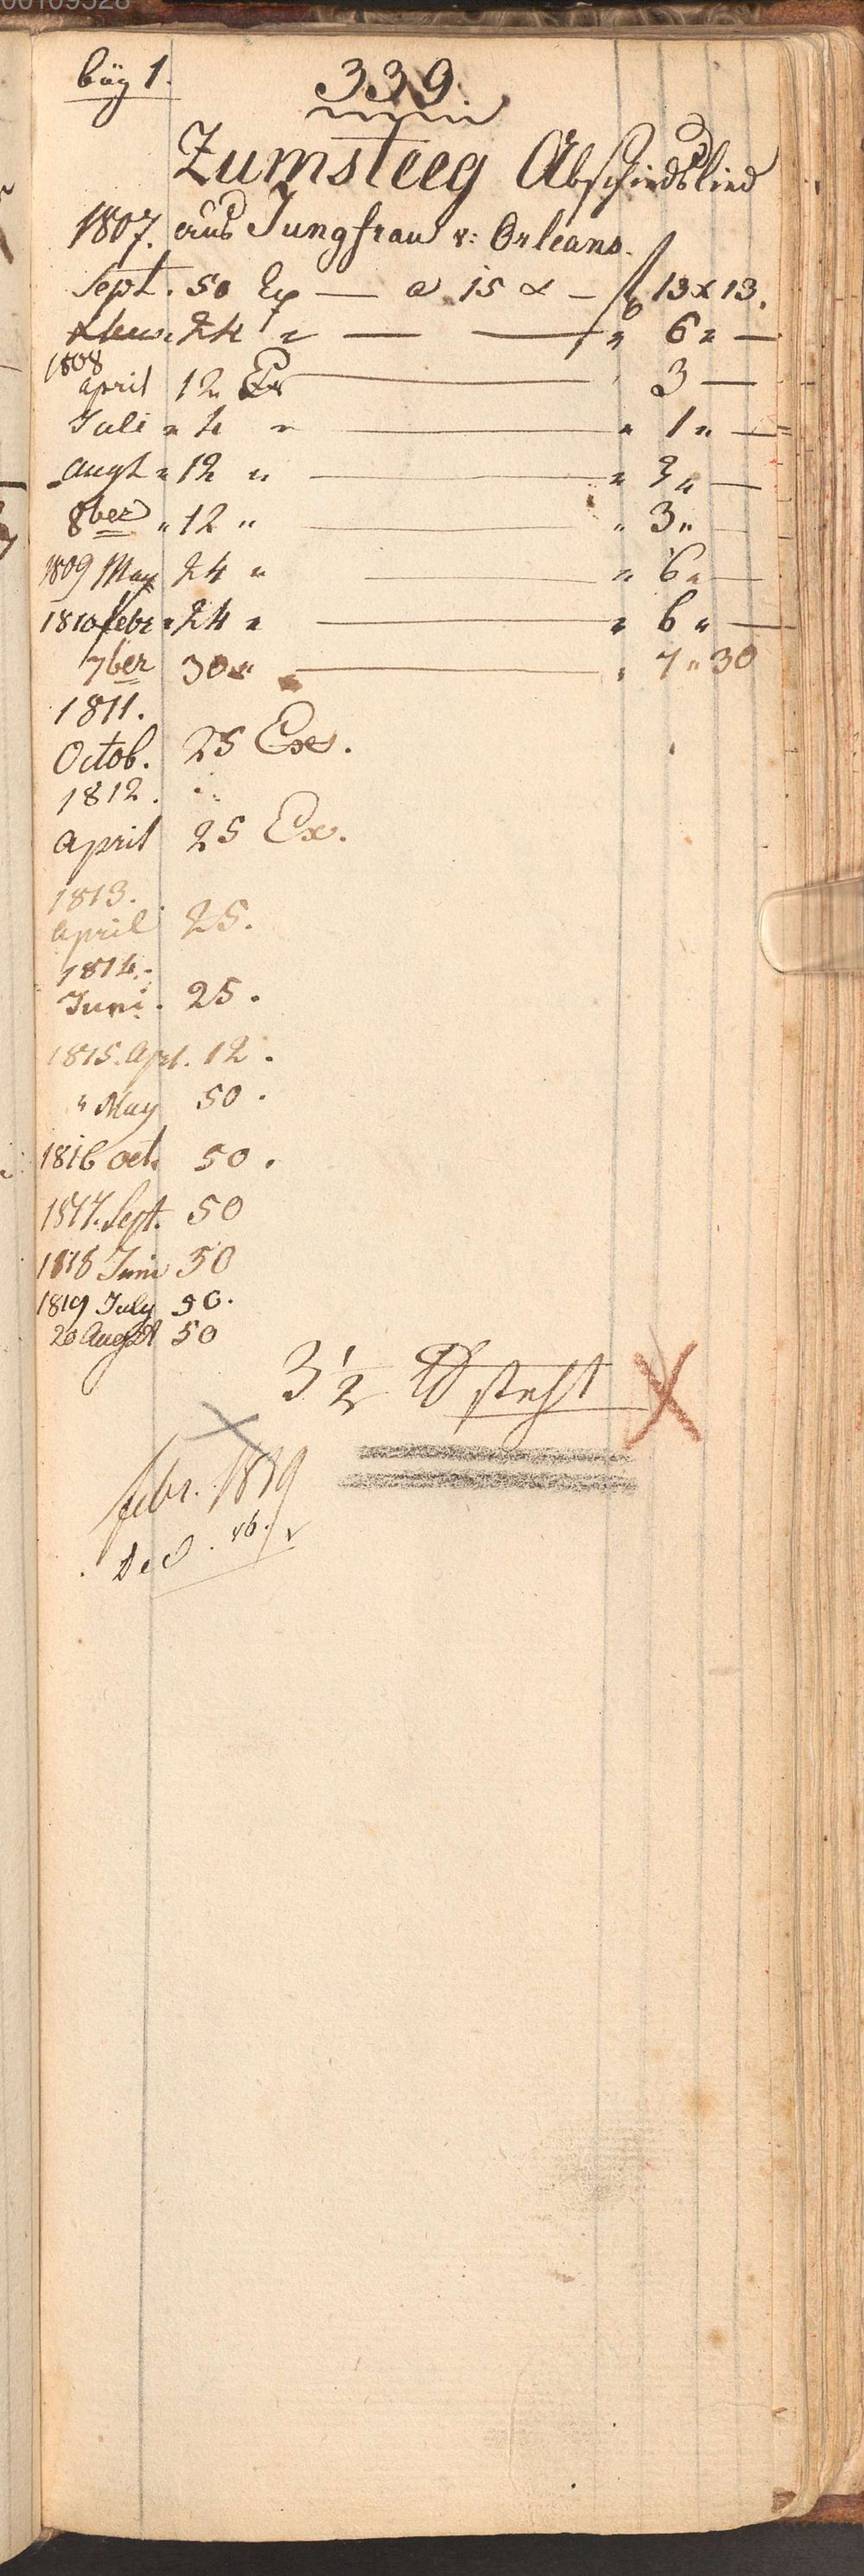 00109528
büg 1.
339.
Zumsteeg Abschiedslied
1807. aus Jungfrau v: Orleans.
Sept. 50 Ex — a 15 x — f 13 x 13.
24 " — — " 6 " —
1808
april 12 Ex — " 3 —
Juli " 4 " — " 1 " —
Augt " 12 " — " 3 " —
8ber " 12 " — " 3 " —
1809 May 24 " — " 6 " —
1810 febr " 24 " — " 6 " —
7ber 30 " " — " 7 " 30
1811.
Octob. 25 Exe.
1812.
April 25 Ex.
1813.
April 25.
1814.
Juni. 25.
1815. Apr. 12.
" May 50.
1816 oct. 50.
1817. Sept. 50
1818 Juni 50
1819 July 50.
20 August 50
3 1/2 steht X
febr. 1819
Dec.